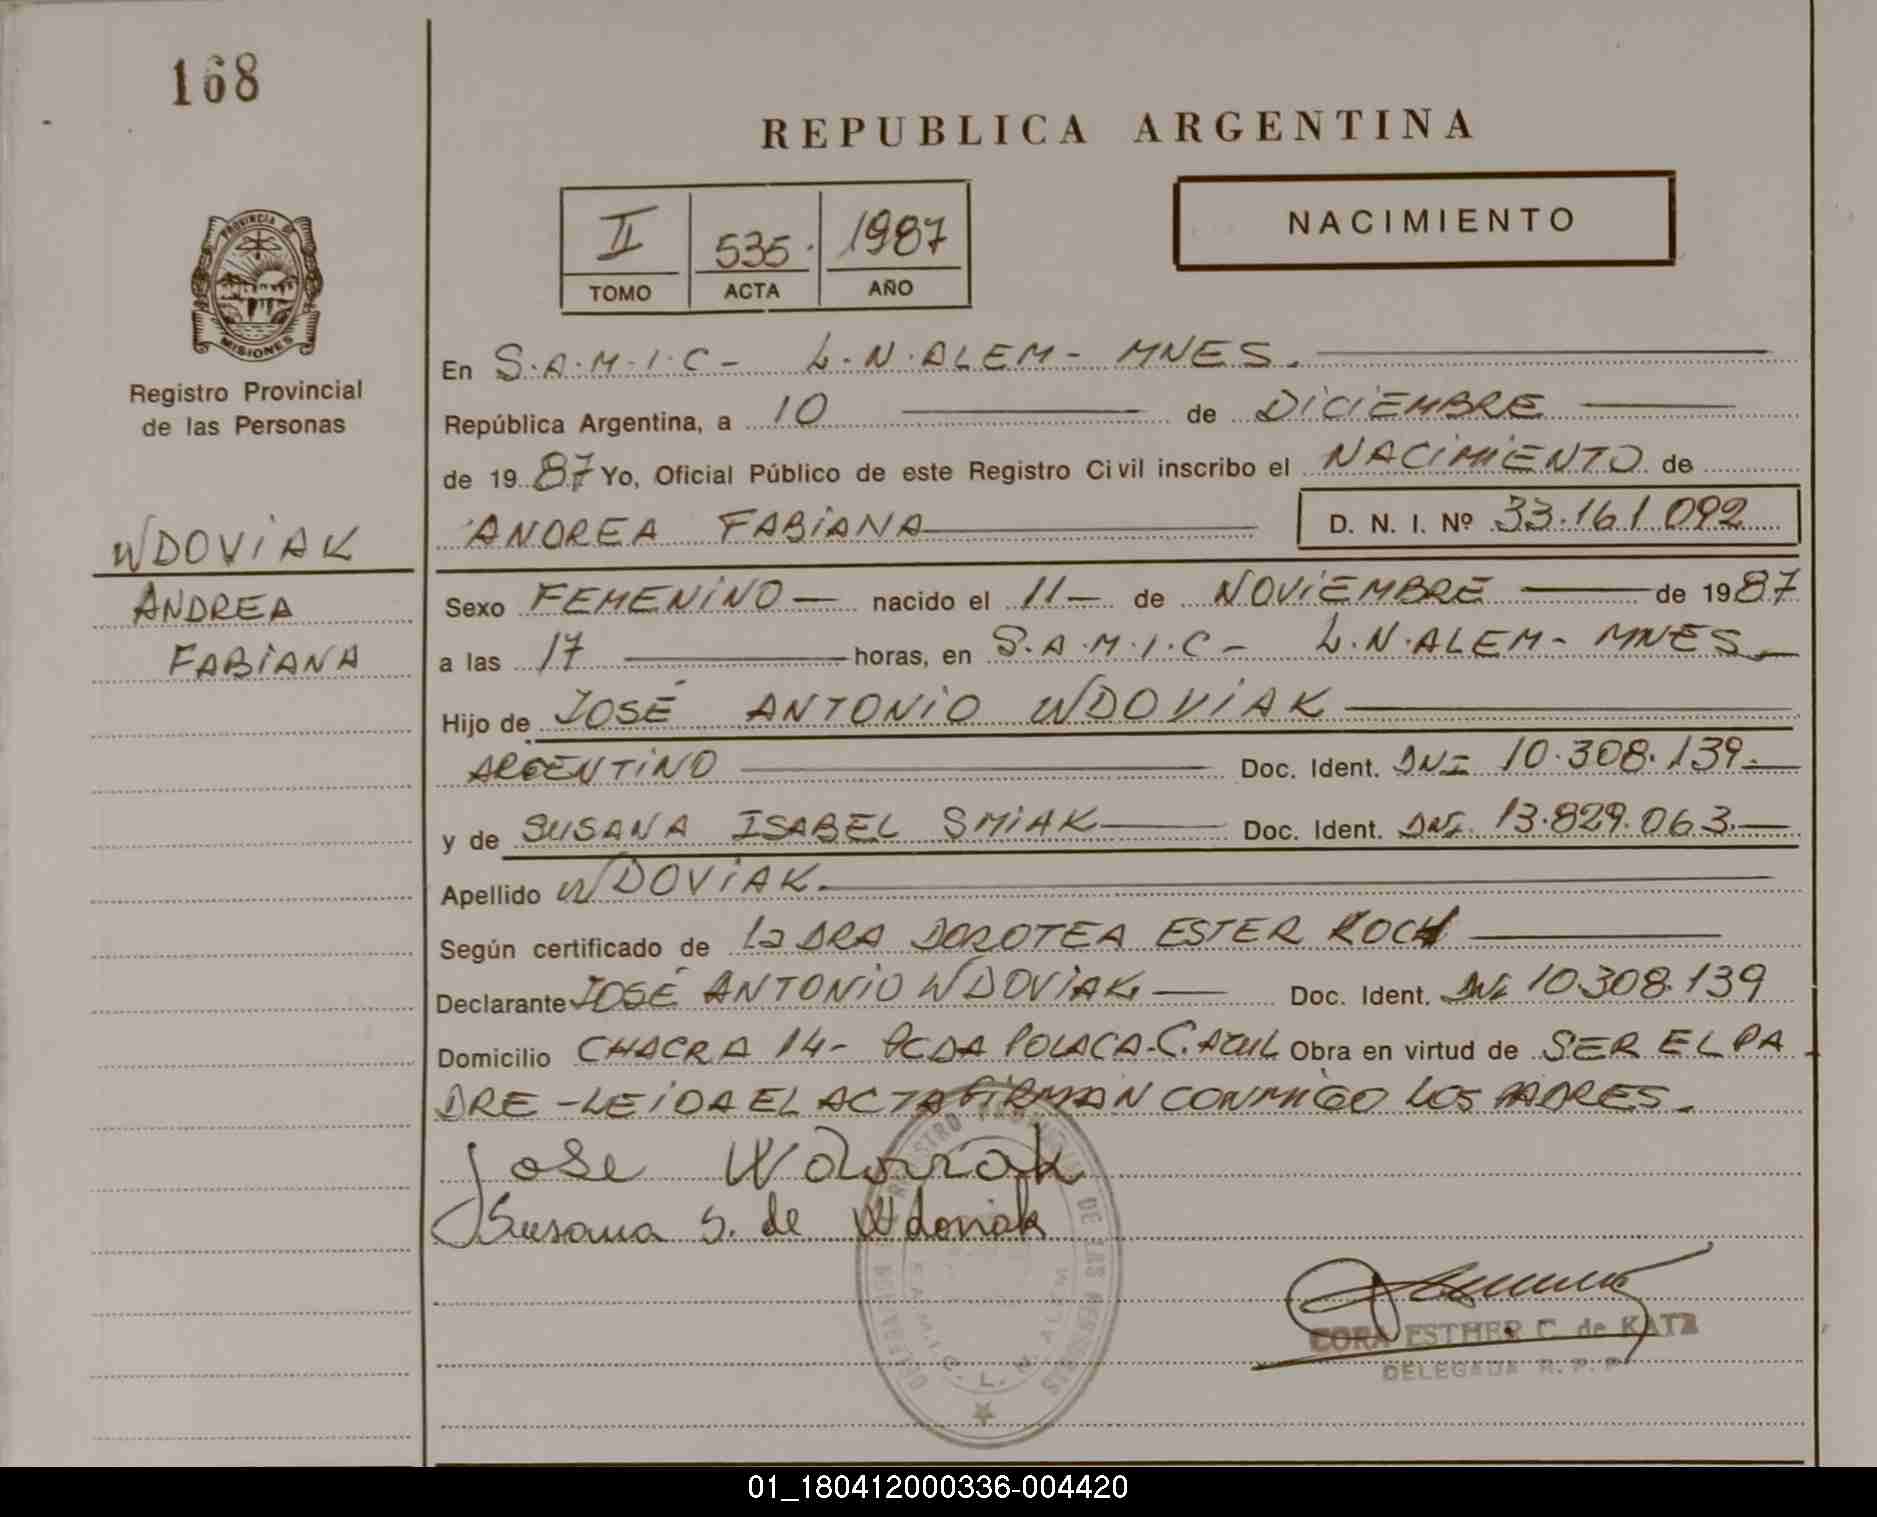 168
REPUBLICA ARGENTINA
NACIMIENTO
II 535. 1987
TOMO ACTA AÑO
PROVINCIA DE
MISIONES
Registro Provincial
de las Personas
WDOVIAK
ANDREA
FABIANA
En S.A.M.I.C - L.N.ALEM - MNES.
República Argentina, a 10 de DICIEMBRE
de 1987 Yo, Oficial Público de este Registro Civil inscribo el NACIMIENTO de
ANDREA FABIANA D. N. I. Nº 33.161.092
Sexo FEMENINO — nacido el 11 — de NOVIEMBRE — de 1987
a las 17 — horas, en S.A.M.I.C - L.N.ALEM - MNES.
Hijo de JOSÉ ANTONIO WDOVIAK
ARGENTINO Doc. Ident. DNI 10.308.139.
y de SUSANA ISABEL SMIAK Doc. Ident. DNI. 13.829.063.
Apellido WDOVIAK.
Según certificado de la DRA DOROTEA ESTER KOCH
Declarante JOSÉ ANTONIO WDOVIAK — Doc. Ident. DNI 10.308.139
Domicilio CHACRA 14 - PCDA POLACA - C. AZUL Obra en virtud de SER EL PA
DRE - LEIDA EL ACTA FIRMAN CONMIGO LOS PADRES.
Jose Wdoviak
Susana S. de Wdoviak
REGISTRO DE LAS PERSONAS
S.A.M.I.C. L. N. ALEM
DORA ESTHER C. de KATZ
DELEGADA R. P. P.
01_180412000336-004420